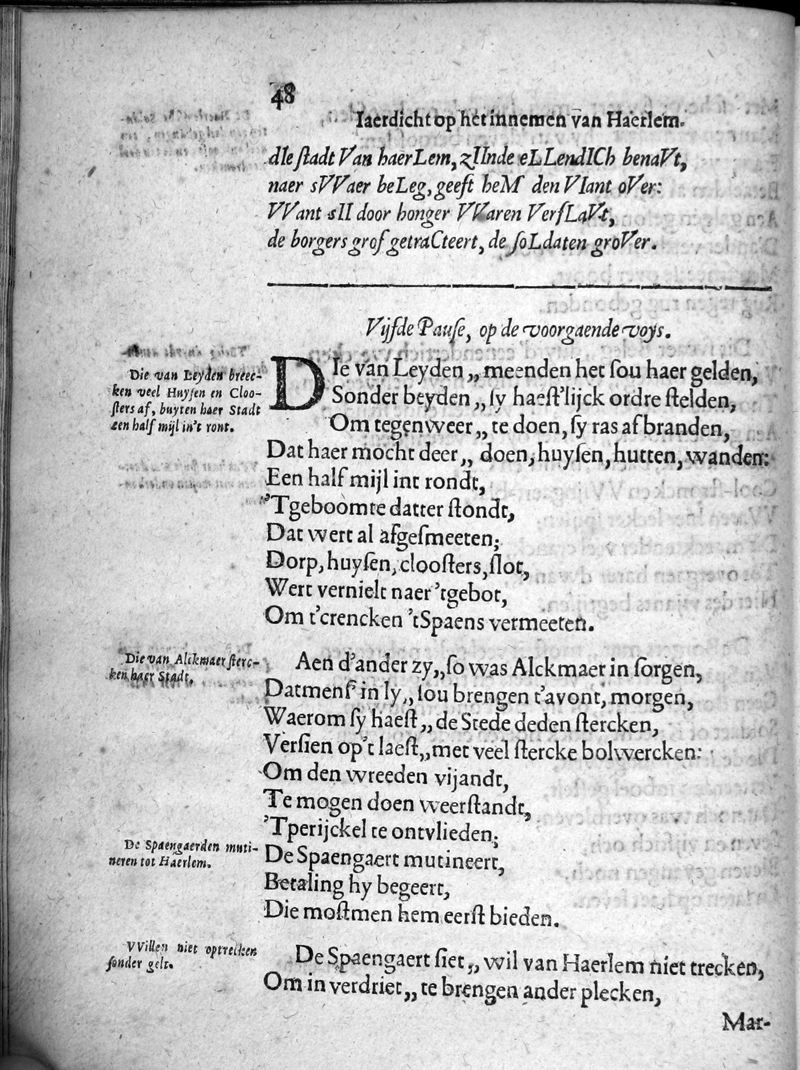 48
Iaerdicht op het innemen van Haerlem.
dIe ſtadt Van haerLem, zIInde eLLendICh benaVt,
naer sVVaer beLeg, geeft heM den VIant oVer:
VVant sII door honger VVaren VerſLaVt,
de borgers grof getraCteert, de ſoLdaten groVer.
Vijfde Pauſe, op de voorgaende voys.
Die van Leyden breec-
ken veel Huyſen en Cloo-
ſters af, buyten haer Stadt
een half mijl in't ront.
DIe van Leyden „ meenden het ſou haer gelden,
Sonder beyden „ ſy haeſt'lijck ordre ſtelden,
Om tegenweer „ te doen, ſy ras afbranden,
Dat haer mocht deer „ doen, huyſen, hutten, wanden:
Een half mijl int rondt,
'Tgeboomte datter ſtondt,
Dat wert al afgeſmeeten;
Dorp, huyſen, clooſters, ſlot,
Wert vernielt naer 'tgebot,
Om t'crencken 'tSpaens vermeeten.
Die van Alckmaer ſterc-
ken haer Stadt.
Aen d'ander zy „ ſo was Alckmaer in ſorgen,
Datmenſ' in ly „ ſou brengen t'avont, morgen,
Waerom ſy haeſt „ de Stede deden ſtercken,
Verſien op't laeſt „ met veel ſtercke bolwercken:
Om den wreeden vijandt,
Te mogen doen weerſtandt,
'Tperijckel te ontvlieden;
De Spaengaerden muti-
neren tot Haerlem.
De Spaengaert mutineert,
Betaling hy begeert,
Die moſtmen hem eerſt bieden.
VVillen niet optrecken
ſonder gelt.
De Spaengaert ſiet „ wil van Haerlem niet trecken,
Om in verdriet „ te brengen ander plecken,
Mar-